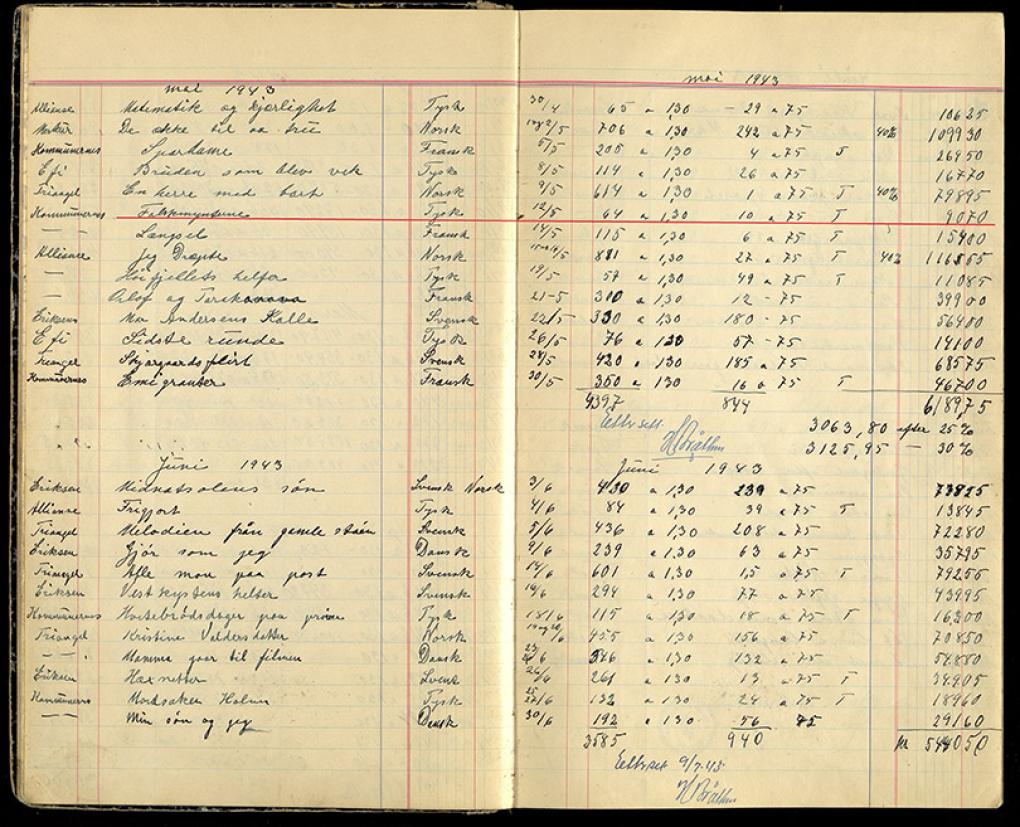 mai 1943 mai 1943
Allianse Matematik og kjærlighet Tysk 30/4 65 a 1,30 - 29 a 75 10625
Merkur De ække til aa tru Norsk 706 a 1,30 242 a 75 40% 109930
Kommunernes Sparkasse Fransk 5/5 205 a 1,30 4 a 75 T 26950
Efi Bruden som blev vek Tysk 8/5 114 a 1,30 26 a 75 16770
Triangel En herre med bart Norsk 9/5 614 a 1,30 1 a 75 T 40% 79895
Kommunernes Tysk 12/5 64 a 1,30 10 a 75 T 9070
— — Længsel Fransk 14/5 115 a 1,30 6 a 75 T 15400
Allianse Jeg Dræpte Norsk 881 a 1,30 27 a 75 T 40% 116555
— Høifjellets helter Tysk 19/5 57 a 1,30 49 a 75 T 11085
— Olof og Fransk 21-5 300 a 1,30 12 - 75 39900
Eriksens Mor Andersens Kalle Svensk 22/5 330 a 1,30 180 - 75 56400
Efi Sidste runde Tysk 26/5 76 a 1,30 57 - 75 14100
Triangel Skjærgaardsflirt Svensk 28/5 420 a 1,30 185 a 75 68575
Kommunernes Emigranter Fransk 30/5 350 a 1,30 16 a 75 T 46700
4397 844 618975
Ettersett 3063,80 after 25%
3125,95 — 30%
Juni 1943 Juni 1943
Eriksen Midnatsolens søn Svensk Norsk 3/6 430 a 1,30 239 a 75 73825
Allianse Frigjort Tysk 4/6 84 a 1,30 39 a 75 T 13845
Triangel Melodien från gamle staén Svensk 5/6 436 a 1,30 208 a 75 72280
Eriksen Gjør som jeg Dansk 9/6 239 a 1,30 63 a 75 35795
Triangel Alle man paa post Svensk 14/6 601 a 1,30 15 a 75 T 79255
Eriksen Vestkystens helter Svensk 16/6 294 a 1,30 77 a 75 43995
Kommunernes Hvetebrødsdager paa prøve Tysk 18/6 115 a 1,30 18 a 75 T 16300
Triangel Kristine Valdersdatter Norsk 455 a 1,30 156 a 75 70850
— — Mamma gaar til filmen Dansk 346 a 1,30 132 a 75 54880
Eriksen Hexnetter Svensk 261 a 1,30 13 a 75 T 34905
Kommunernes Mordsaken Holm Tysk 132 a 1,30 24 a 75 T 18960
— — Min søn og jeg Dansk 30/6 192 a 1,30 56 75 29160
3585 940 kr 544050
Ettersett 9/7.43